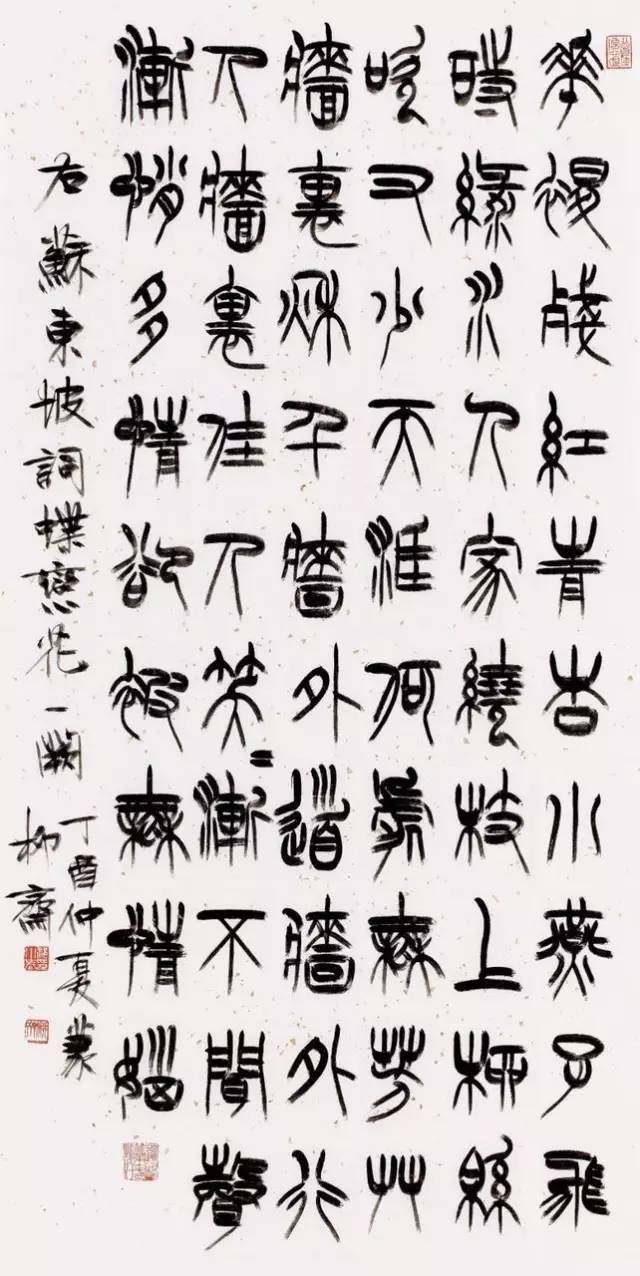 華褪殘紅青杏小燕子飛
時綠水人家繞枝上柳緜
吹又少天涯何處無芳艸
牆裏秋千牆外道牆外行
人牆裏佳人笑〻漸不聞聲
漸悄多情卻被無情惱
右蘇東坡詞蝶戀花一闋
丁酉仲夏篆
柳齋